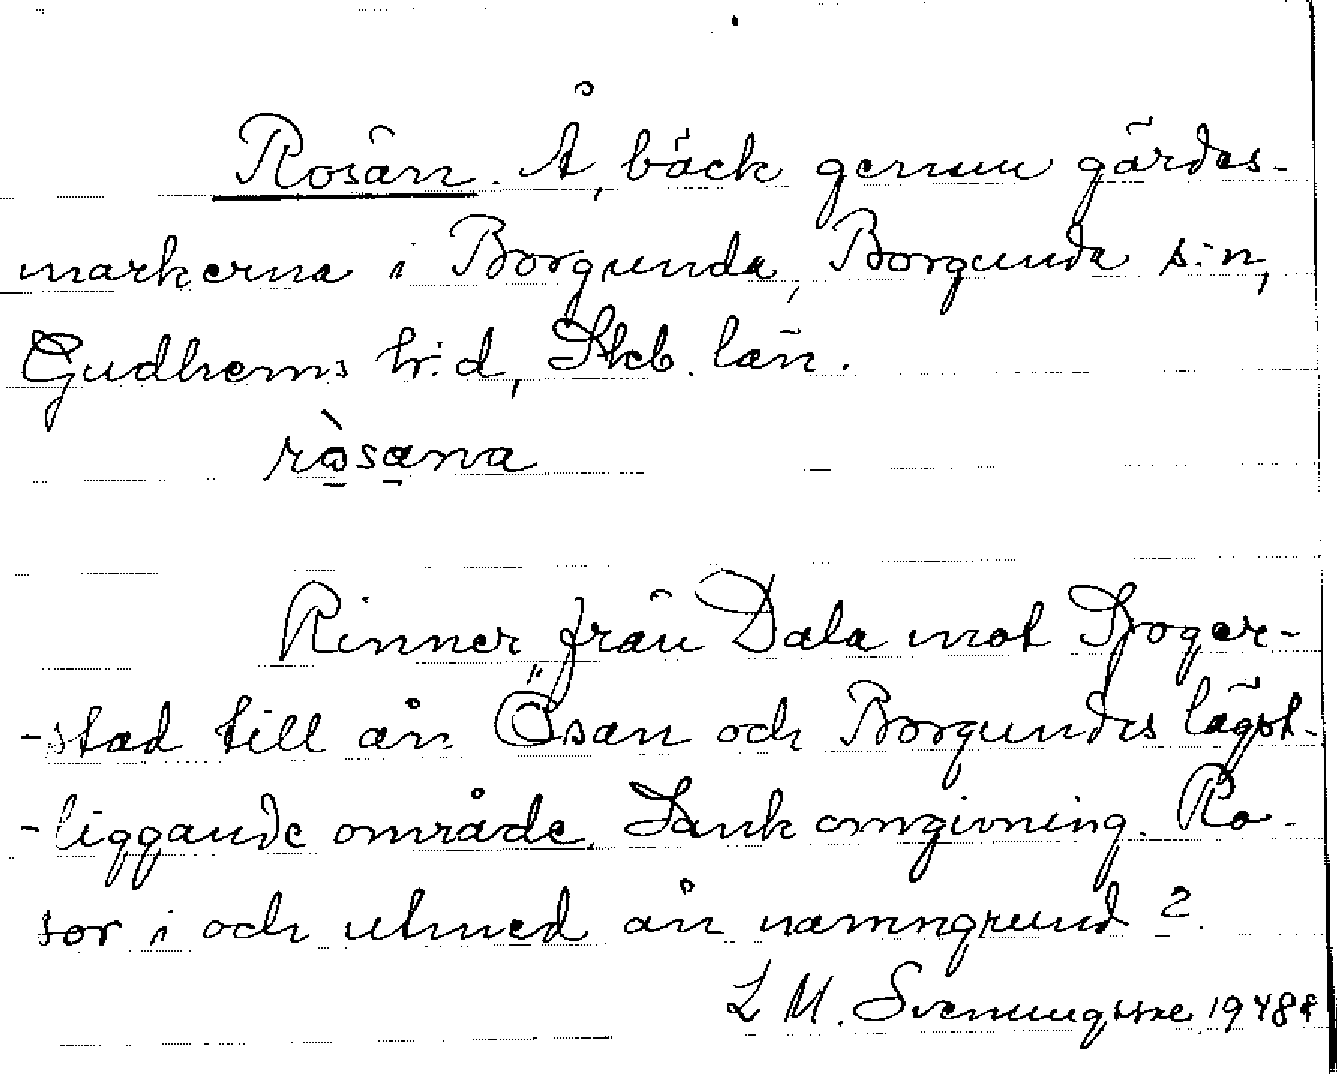 Rosån. Å, bäck genom gärdes-
markerna i Borgunda, Borgunda s:n,
Gudhems h:d, Skb. län.
ròsana
Rinner från Dala mot Stoger-
-stad till ån Ösan och Borgundas lägst-
-liggande område. Sank omgivning. Ro-
sor i och utmed ån namngrund?
L M. Svenungsson 1948